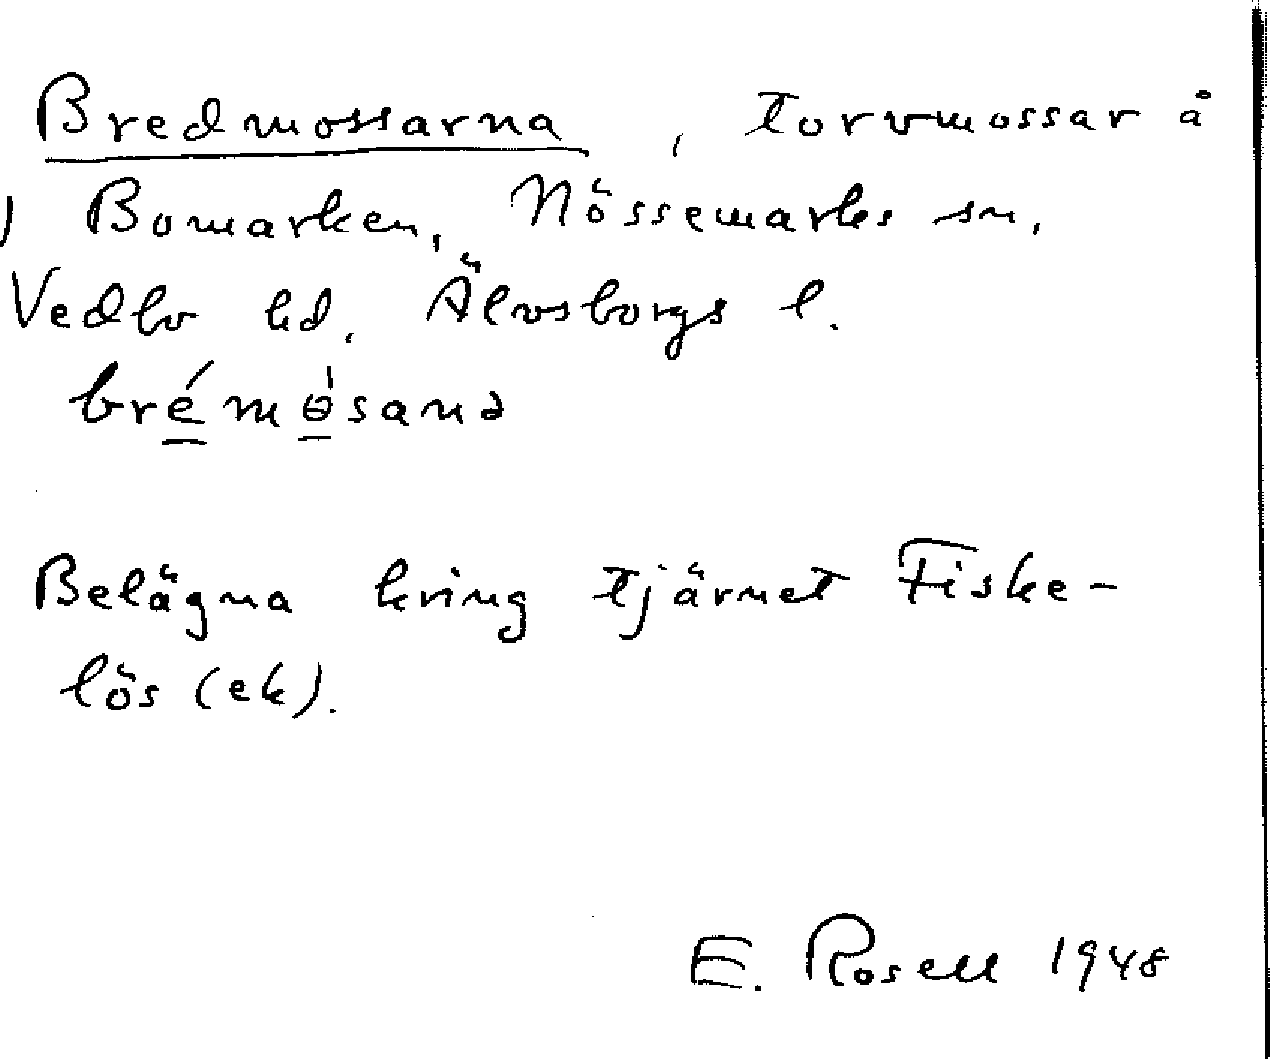 Bredmossarna, torvmossar å
) Bomarken, Nössemarks sn,
Vedbo hd, Älvsborgs l.
brémɵ́sanə
Belägna kring tjärnet Fiske-
lös (ek).
E. Rosell 1948